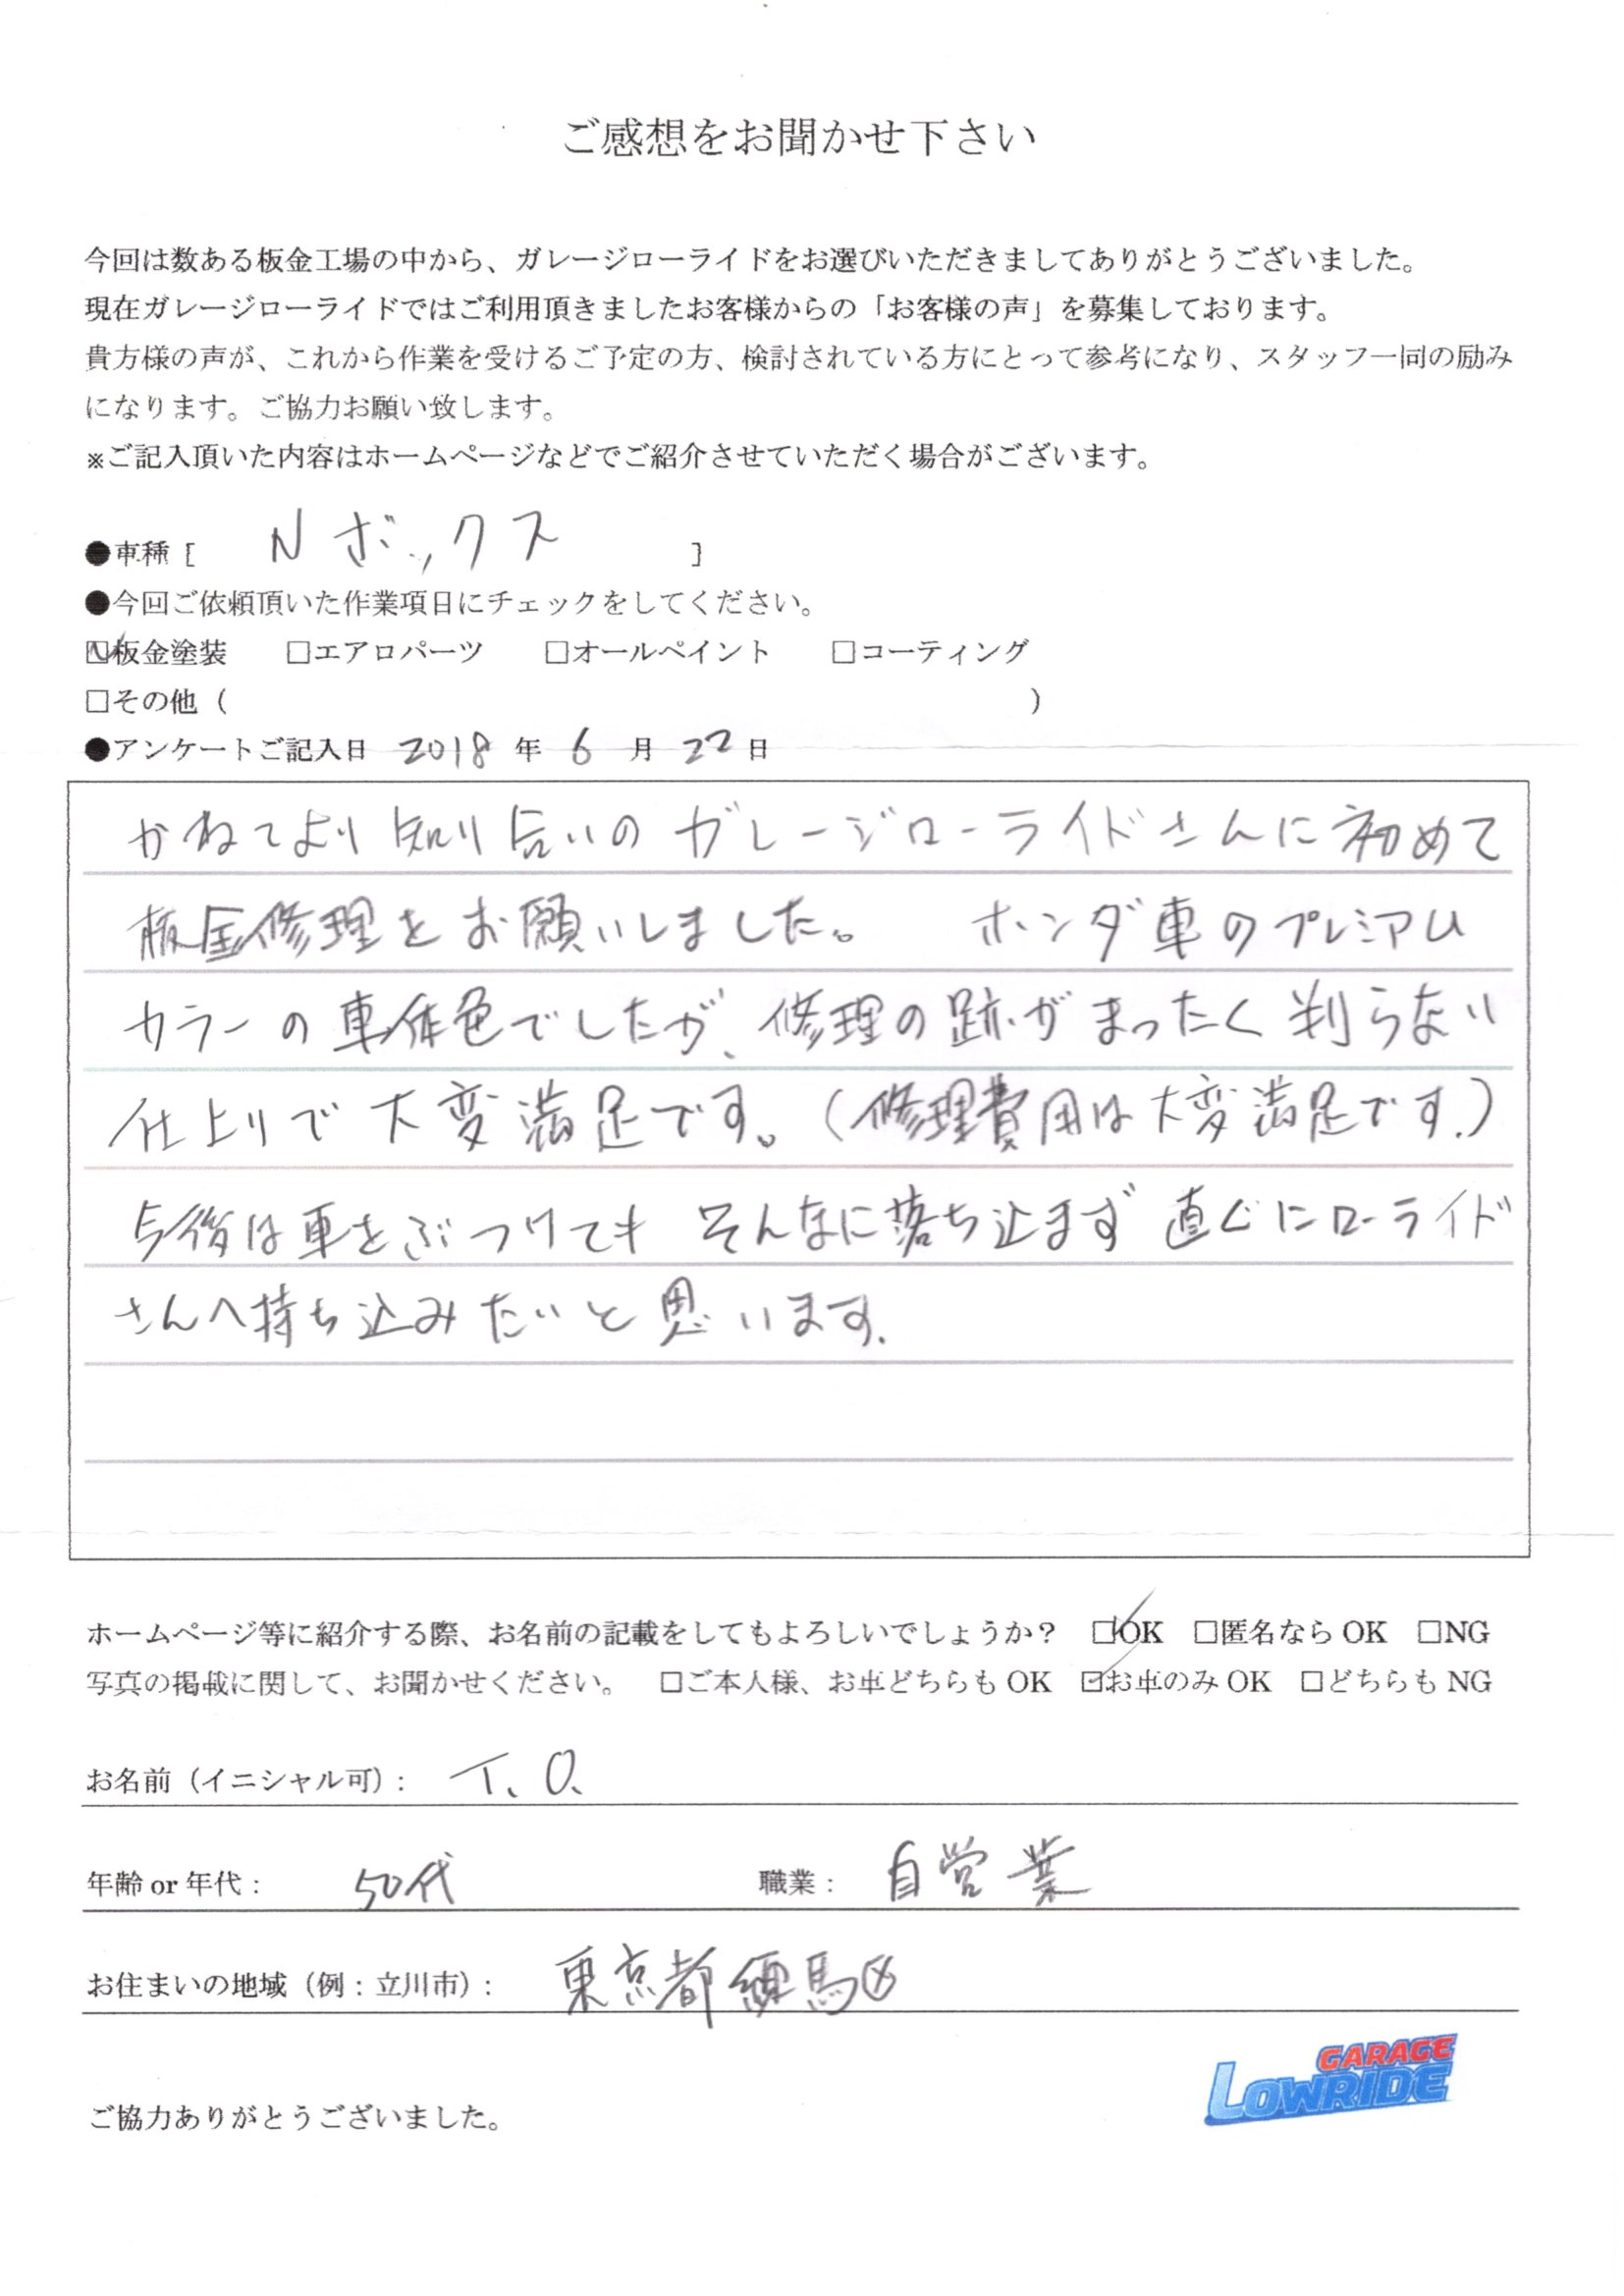 ご感想をお聞かせ下さい
今回は数ある板金工場の中から、ガレージローライドをお選びいただきましてありがとうございました。
現在ガレージローライドではご利用頂きましたお客様からの「お客様の声」を募集しております。
貴方様の声が、これから作業を受けるご予定の方、検討されている方にとって参考になり、スタッフ一同の励み
になります。ご協力お願い致します。
※ご記入頂いた内容はホームページなどでご紹介させていただく場合がございます。
●車種 [ Nボックス ]
●今回ご依頼頂いた作業項目にチェックをしてください。
☑板金塗装 □エアロパーツ □オールペイント □コーティング
□その他 ( )
●アンケートご記入日 2018 年 6 月 22 日
かねてより知り合いのガレージローライドさんに初めて
板金修理をお願いしました。 ホンダ車のプレミアム
カラーの車体色でしたが、修理の跡がまったく判らない
仕上りで大変満足です。(修理費用は大変満足です.)
今後は車をぶつけても そんなに落ち込まず 直ぐにローライド
さんへ持ち込みたいと思います.
ホームページ等に紹介する際、お名前の記載をしてもよろしいでしょうか? ☑OK □匿名なら OK □NG
写真の掲載に関して、お聞かせください。 □ご本人様、お車どちらも OK ☑お車のみ OK □どちらも NG
お名前(イニシャル可): T.O.
年齢 or 年代: 50代 職業: 自営業
お住まいの地域(例:立川市): 東京都練馬区
GARAGE
LOWRIDE
ご協力ありがとうございました。